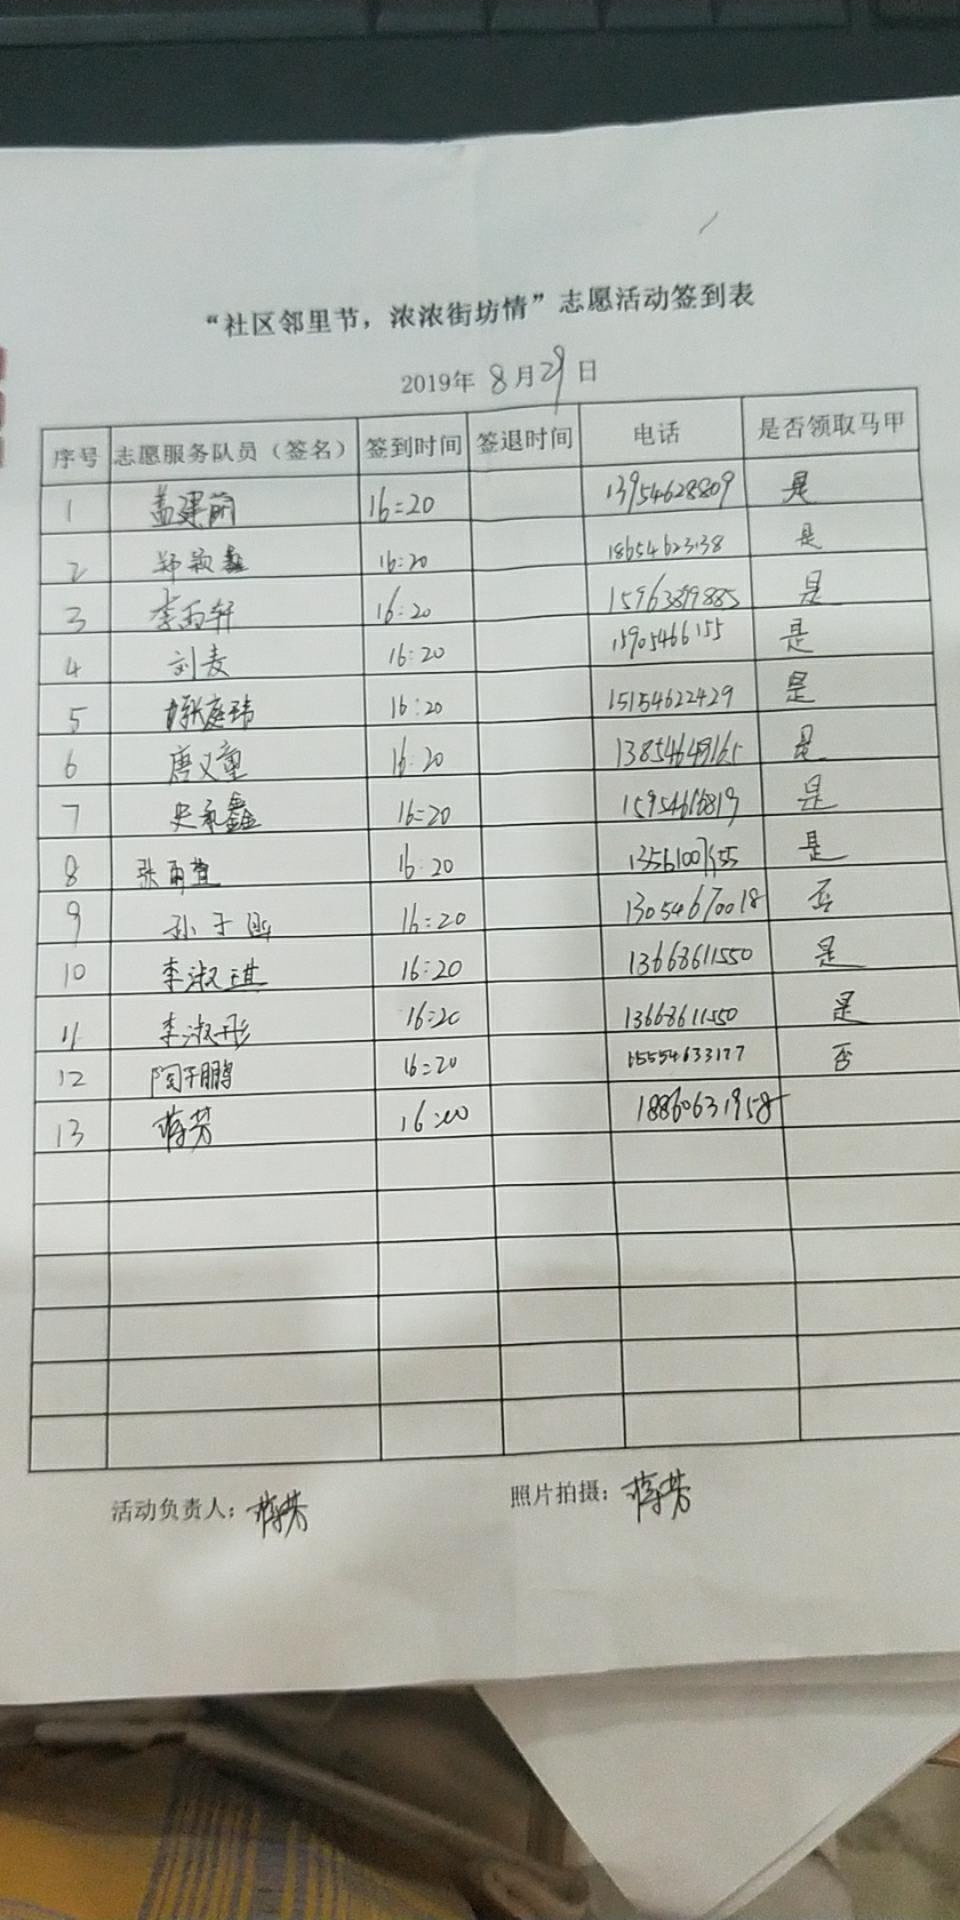 “社区邻里节，浓浓街坊情”志愿活动签到表
2019年 8月29日
序号 志愿服务队员（签名） 签到时间 签退时间 电话 是否领取马甲
1 盖建丽 16:20 13954628809 是
2 郑颖鑫 16:20 是
3 李雨轩 16:20 15963899885 是
4 刘麦 16:20 15905466155 是
5 张庭玮 16:20 15154622429 是
6 唐义童 16:20 13854648165 是
7 史承鑫 16:20 是
8 张雨萱 16:20 是
9 孙于 16:20 13054670018 否
10 李淑琪 16:20 13668611550 是
11 李淑彤 16:20 13668611550 是
12 陶于鹏 16:20 15554633177 否
13 蒋芳 16:20 18860631958
活动负责人：蒋芳 照片拍摄：蒋芳